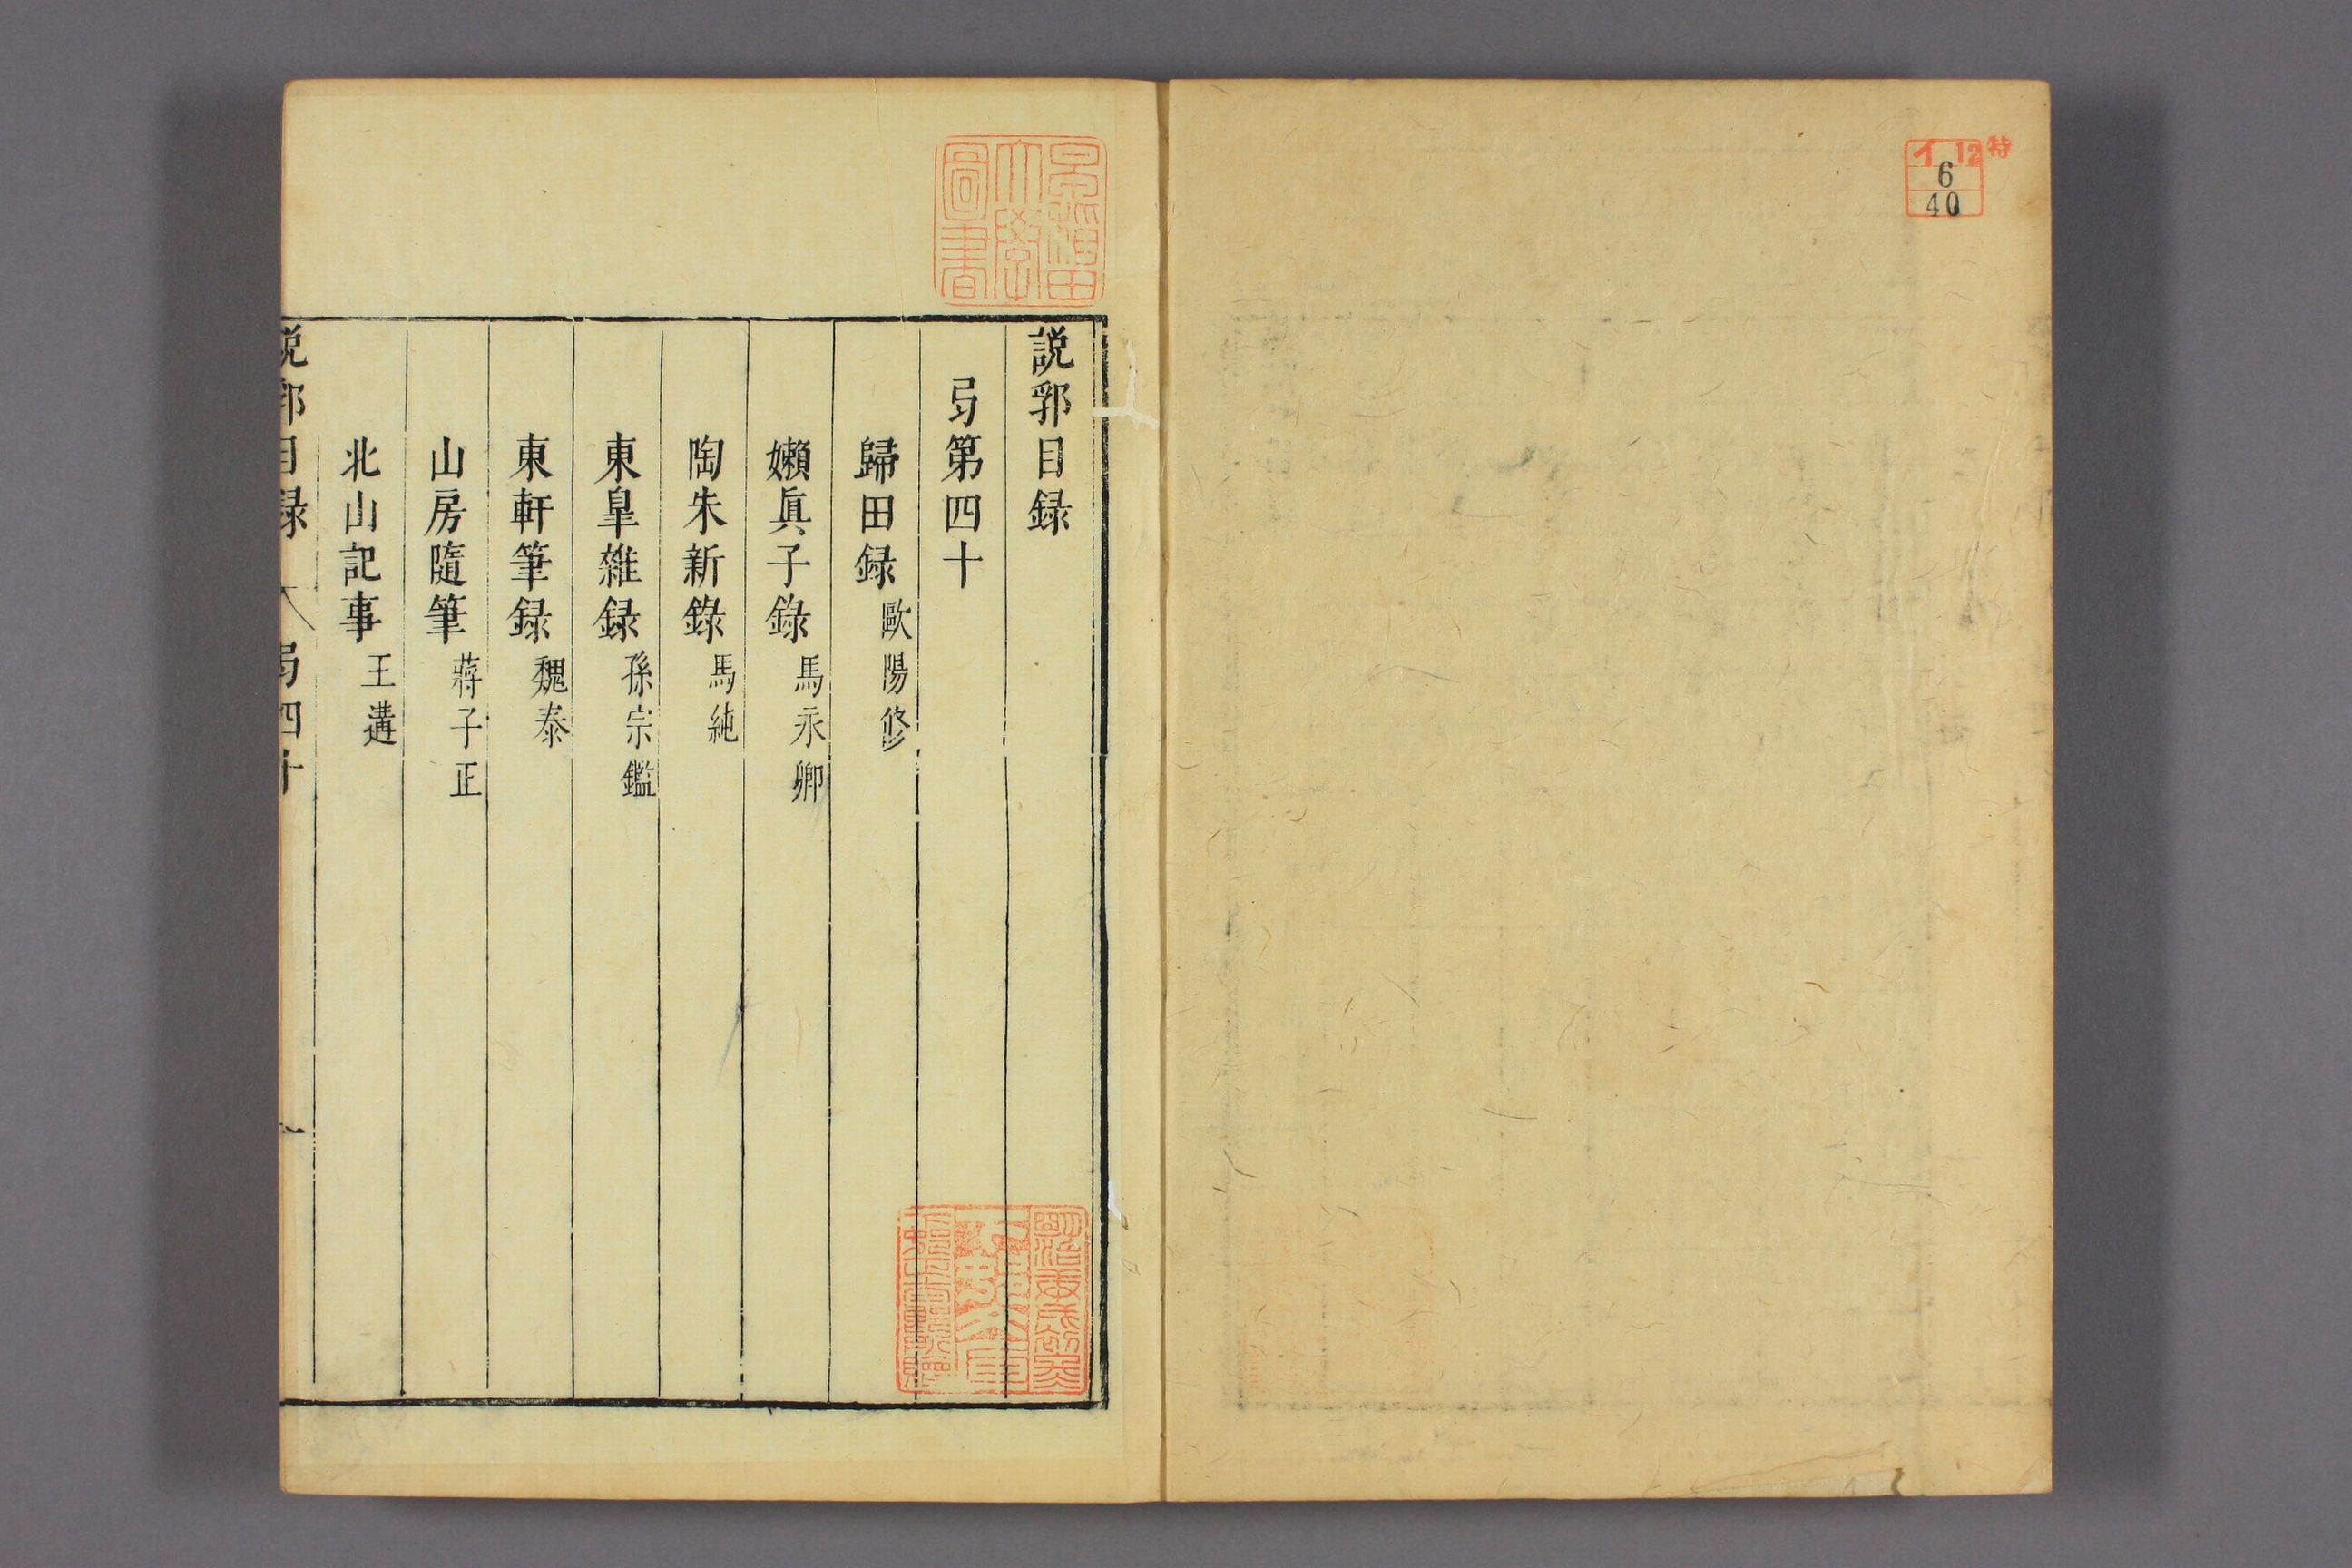 特
イ 12
6
40
早稲田
大學
圖書
説郛目録
弓第四十
歸田録 歐陽修
嬾眞子錄 馬永卿
陶朱新錄 馬純
東皐雜録 孫宗鑑
東軒筆録 魏泰
山房隨筆 蔣子正
北山記事 王遘
説郛目録 弓四十 一